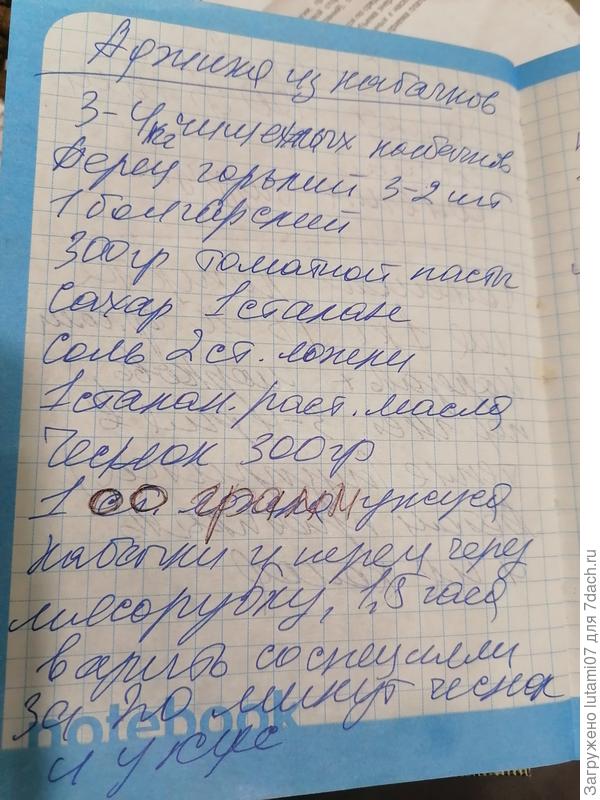 Аджика из кабачков
3-4кг чищенных кабачков
Перец горький 3-2 шт
1 болгарский
300гр томатной пасты
Сахар 1 стакан
Соль 2 ст. ложки
1 стакан. раст. масла
Чеснок 300гр
100 грамм уксуса
Кабачки и перец через
мясорубку, 1,5 часа
варить со специями
за 20 минут чеснок
и уксус
notebook
Загружено lutami07 для 7dach.ru